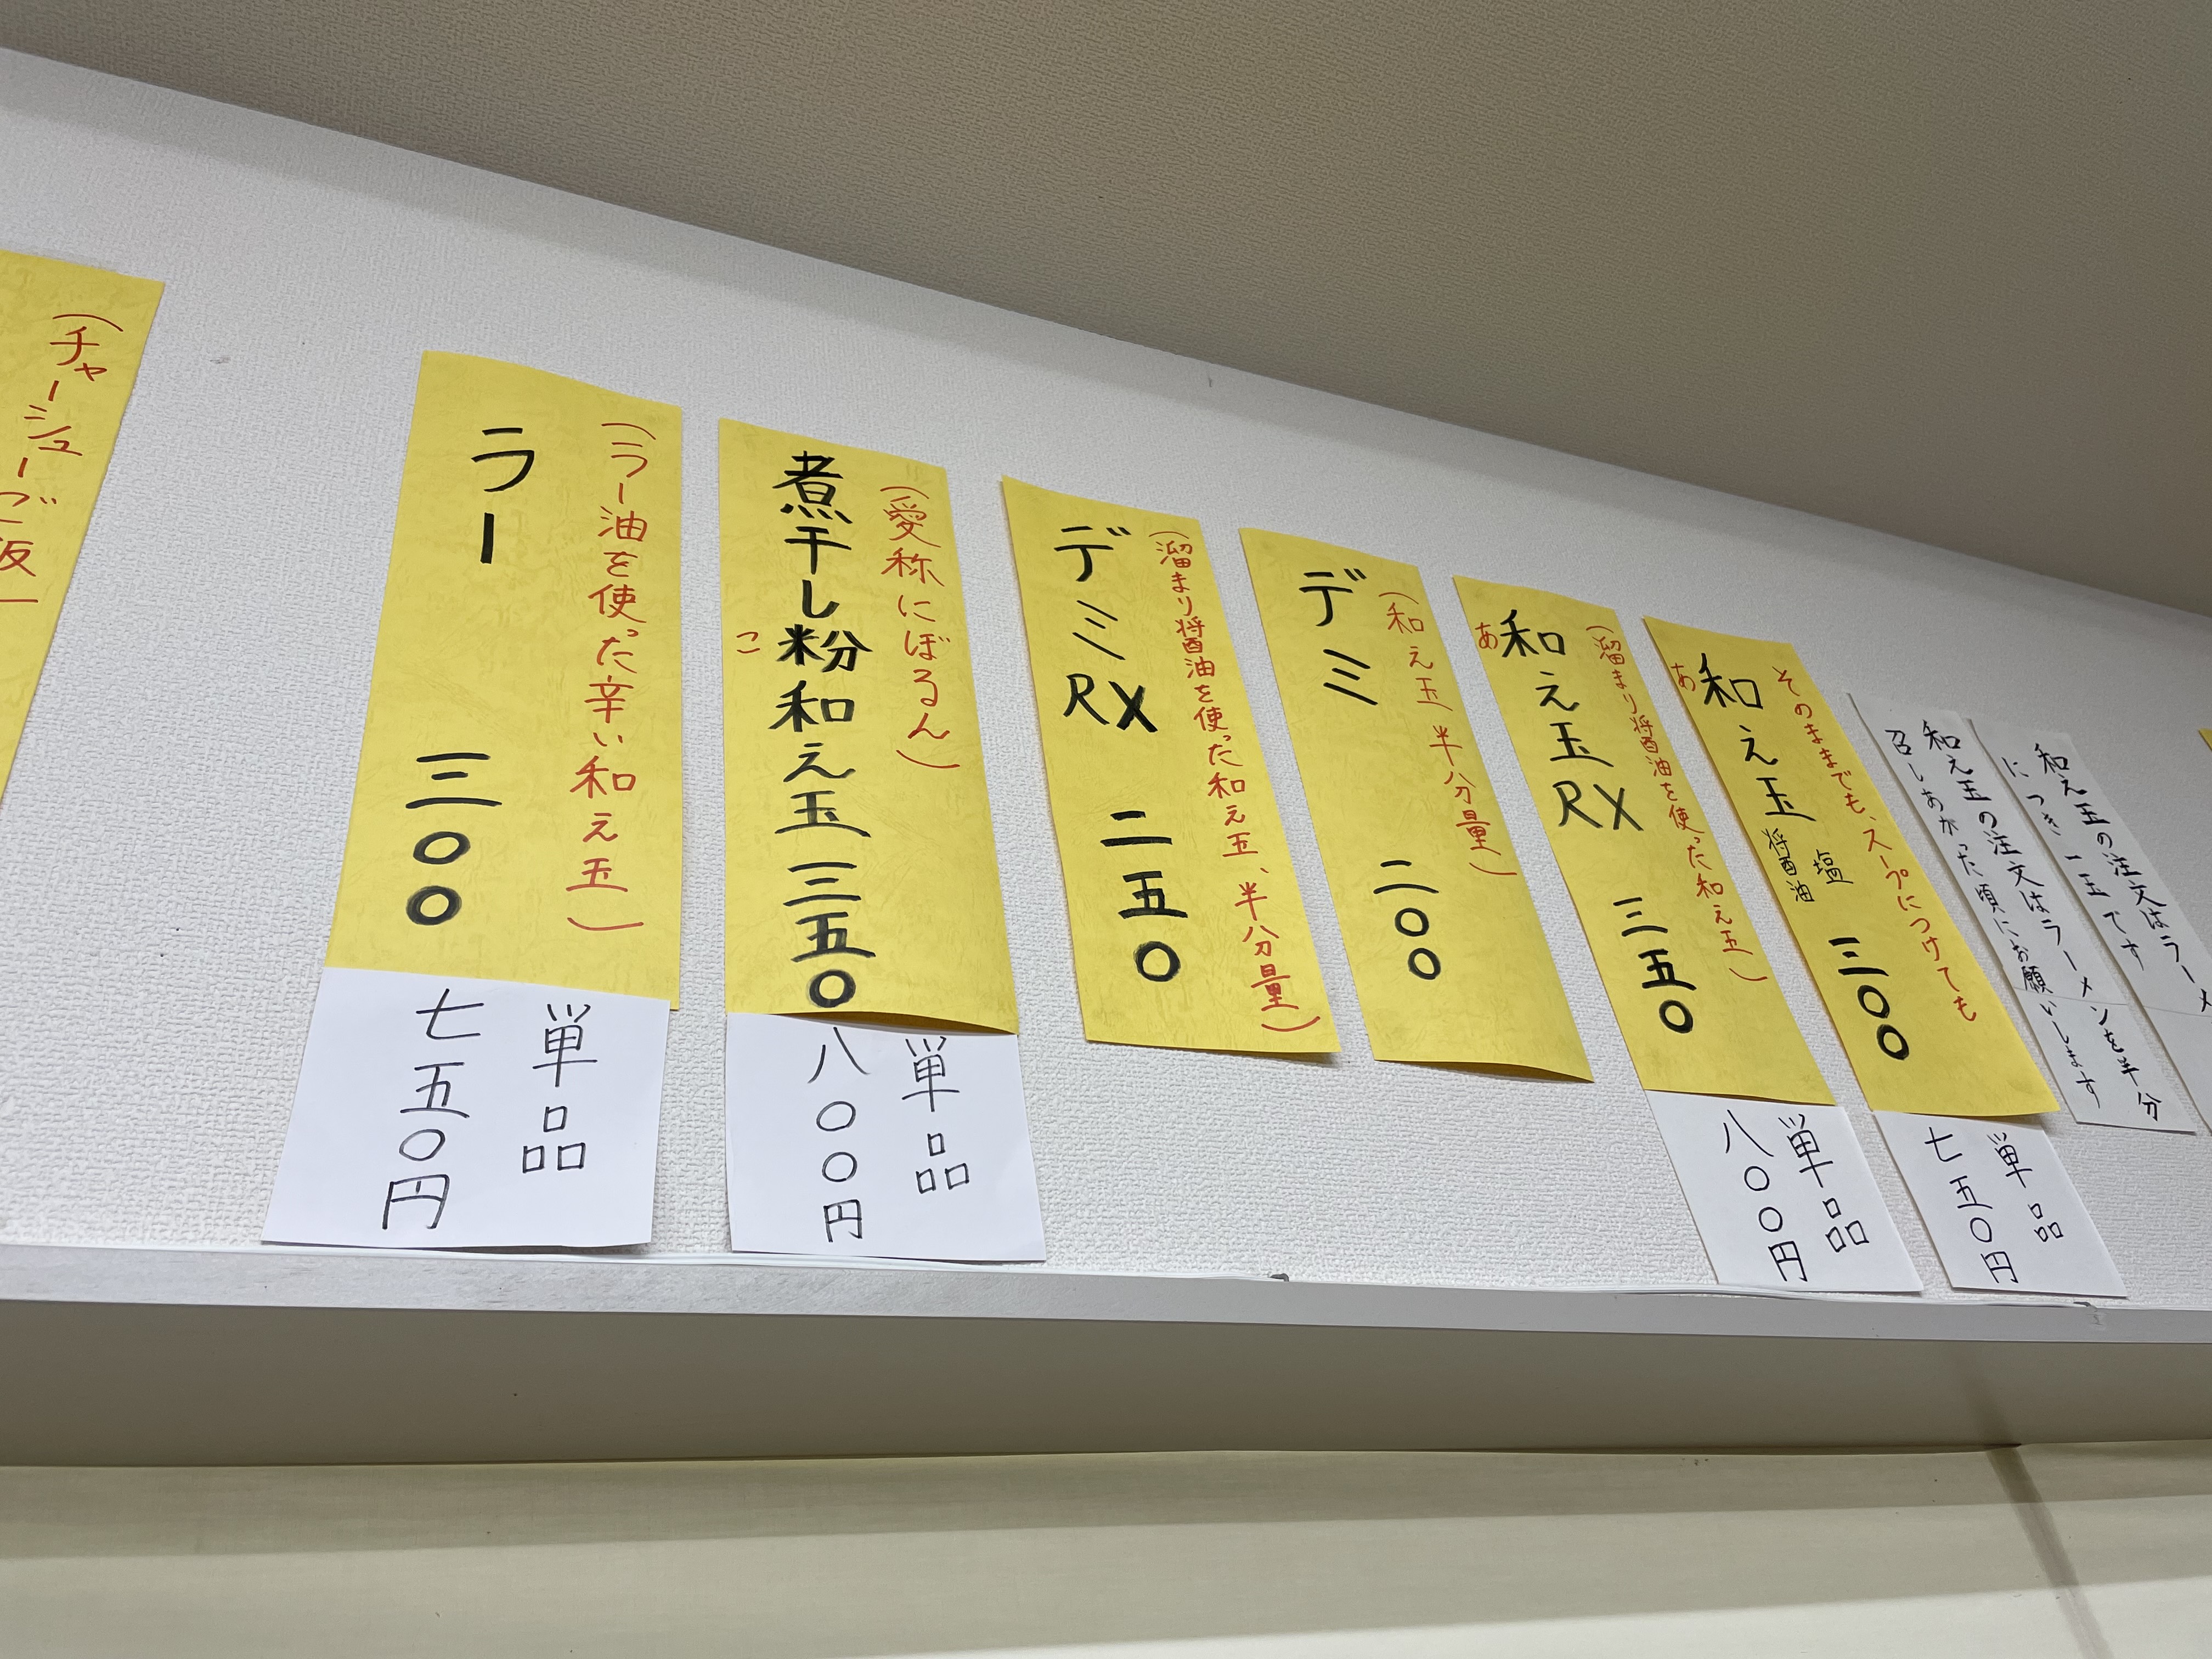 和え玉の注文はラーメ
につき一玉です
和え玉の注文はラーメンを半分
召しあがった頃にお願いします
そのままでも、スープにつけても
和え玉 塩 醤油 三〇〇
あ
単品
七五〇円
(溜まり醤油を使った和え玉)
和え玉RX 三五〇
あ
単品
八〇〇円
(和え玉半分量)
デミ 二〇〇
(溜まり醤油を使った和え玉、半分量)
デミRX 二五〇
(愛称にぼるん)
煮干し粉和え玉 三五〇
こ
単品
八〇〇円
(ラー油を使った辛い和え玉)
ラー 三〇〇
単品
七五〇円
(チャーシューご飯